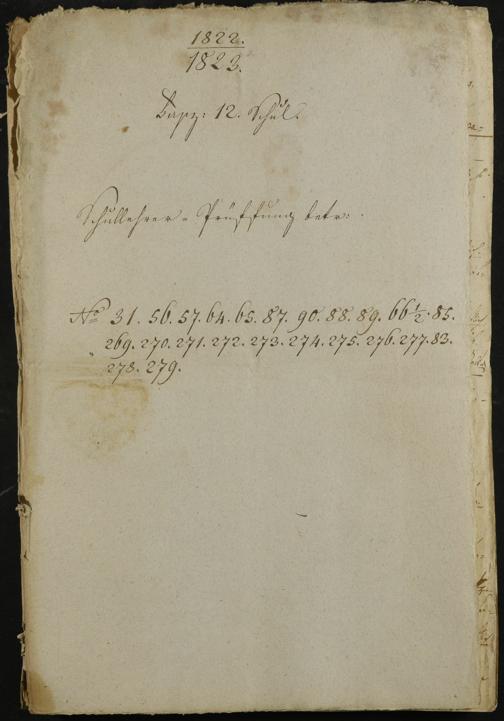 1822.
1823.
12. Schul.
Schullehrer-Prüffung betr:
No 31. 56. 57. 64. 65. 87. 90. 88. 89. 66 1/2. 85.
269. 270. 271. 272. 273. 274. 275. 276. 277. 83.
278. 279.